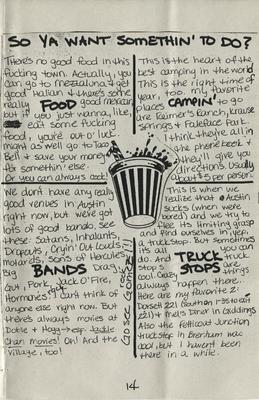 SO YA WANT SOMETHIN' TO DO?
There's no good food in this
fucking town. Actually, you
can go to Mezzaluna & get
good Italian & there's some
really FOOD good mexican,
but if you just wanna, like,
eat some fucking
food, you're out o' luck.
Might as well go to Taco
Bell & save your money
to do somethin' else.
Or you can always cook.
This is the heart of the
best camping in the world
This is the right time of
year, too. My favorite
places CAMPIN' to go
are Reimer's Ranch, Krause
springs & Paleface Park.
I think they're all in
the phone book &
they'll give you
directions. Usually
about $5 per person.
We don't have any really
good venues in Austin
right now, but we've got
lots of good bands. See
these: Satans, Inhalants,
Dropouts, Cryin' Out Louds,
Motards, sons of Hercules,
Big BANDS Drag,
Gut, Pork, Jack O'Fire,
Hormones. I can't think of
anyone else right now. But
there's always movies at
Dobie & Hogg → esp. Jackie
Chan movies! Oh! And the
Village, too!
Go see Gomez
This is when we
realize that Austin
sucks (when we're
bored) and we try to
flee its limiting grasp
and find ourselves in
a truckstop. But sometimes
its all you can
do. And TRUCK truck
stops STOPS are
cool. Crazy things
always happen there.
Here are my favorite 2:
Dorsett 221 (South on I-35 to exit
221) & Mel's Diner in Giddings
Also the Petticoat Junction
truckstop in Brenham was
cool, but I haven't been
there in a while.
14